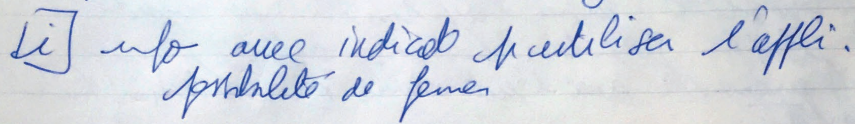 [i] info avec indicat° pr utiliser l'appli.
possibilité de fermer